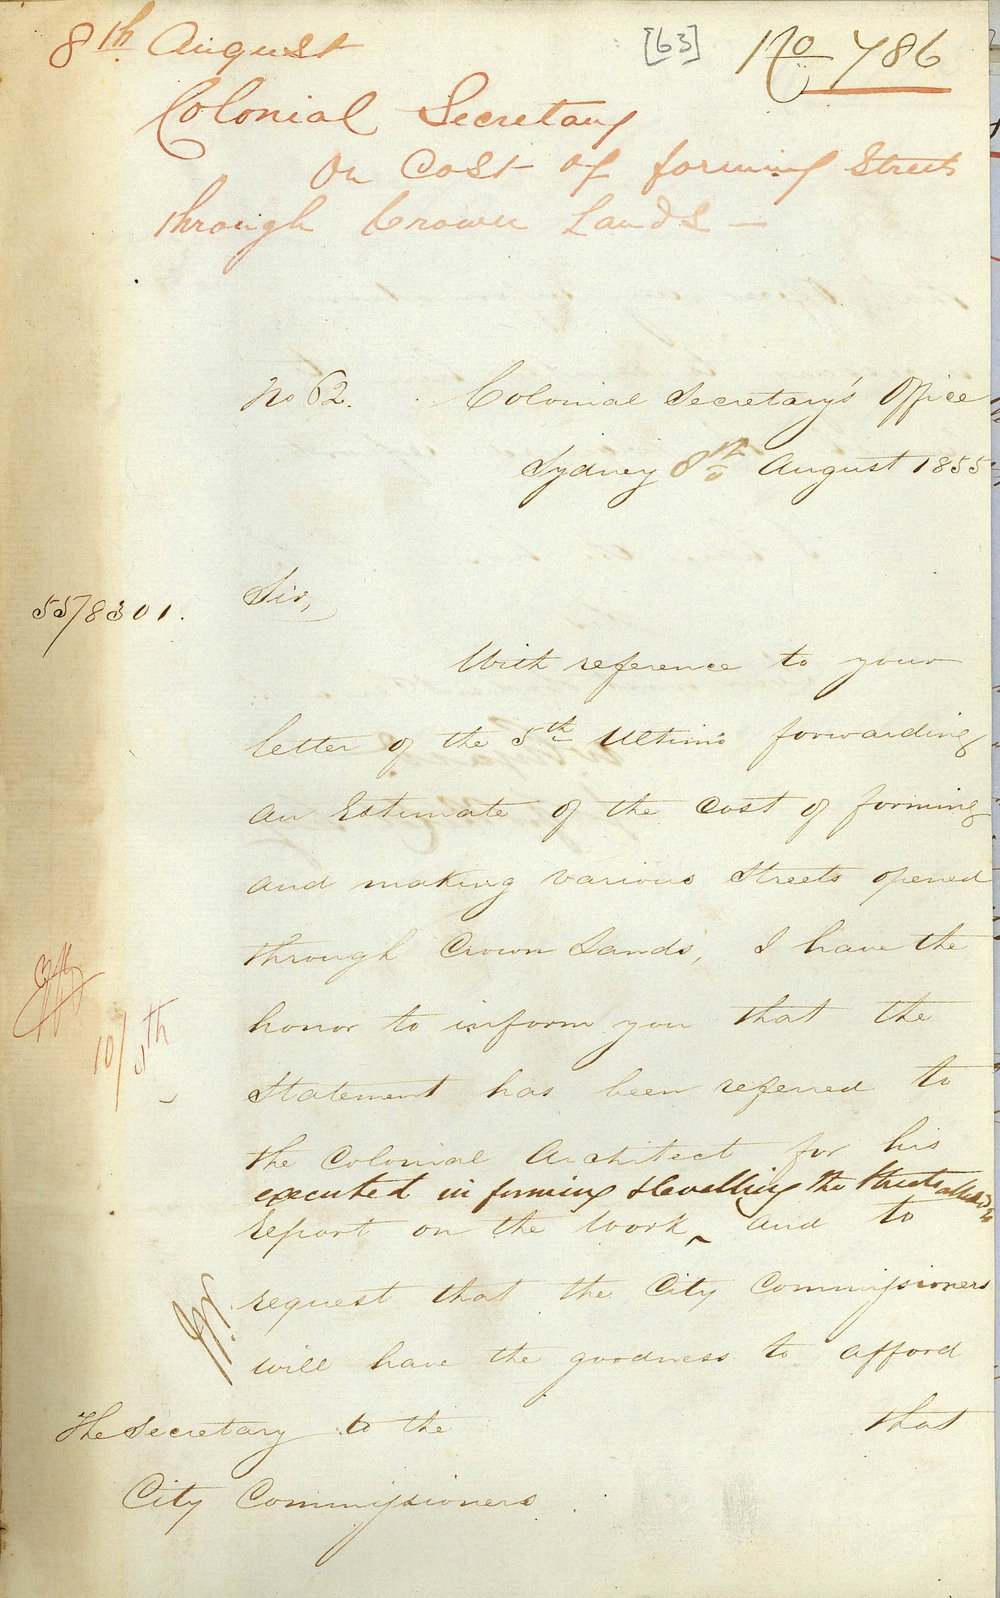 8th August
[63]
No 786
Colonial Secretary
On Cost of forming Streets
through Crown Lands —
No 62. Colonial Secretary's Office
Sydney 8th August 1855
55/8301.
Sir,
With reference to your
letter of the 5th Ultimo forwarding
an Estimate of the Cost of forming
and making various Streets opened
through Crown Lands, I have the
honor to inform you that the
10/8th
Statement has been referred to
the Colonial Architect for his
executed in forming & levelling the Streets alluded to
report on the Work ‸ and to
request that the City Commissioners
will have the goodness to afford
The Secretary to the
that
City Commissioners